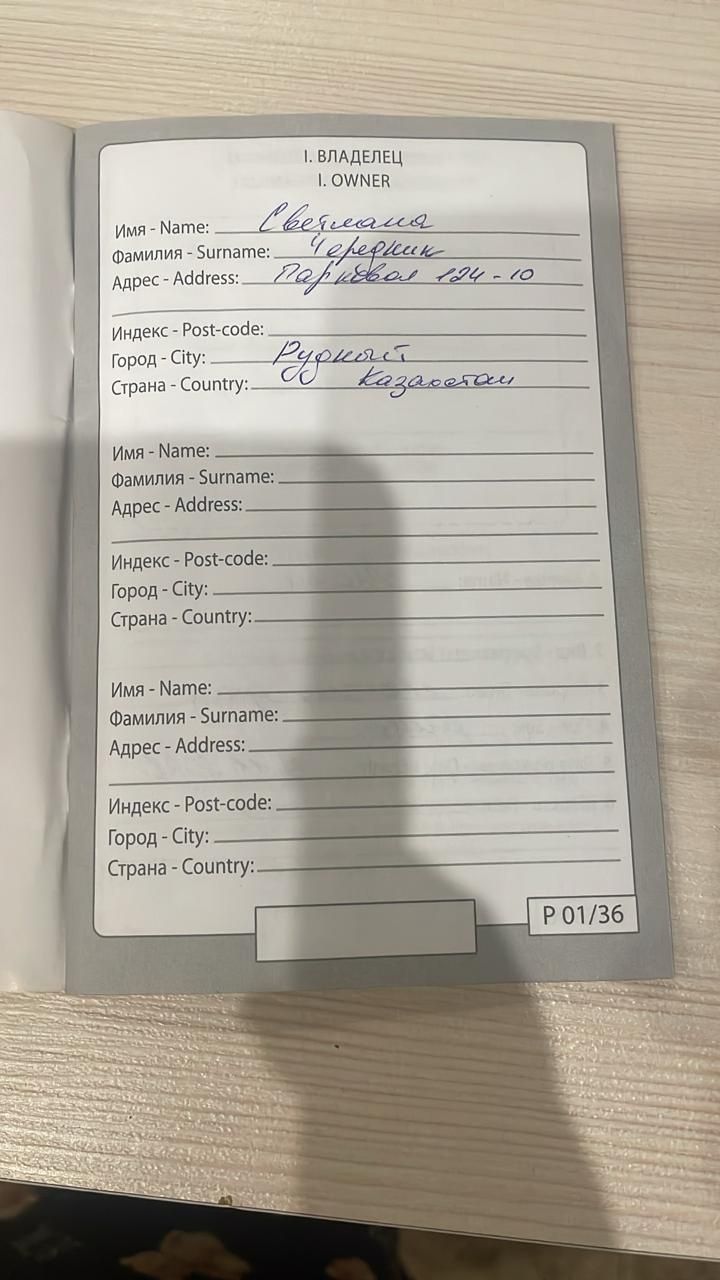 I. ВЛАДЕЛЕЦ
I. OWNER
Имя - Name: Светлана
Фамилия - Surname: Чередник
Адрес - Address: Парковая 124-10
Индекс - Post-code:
Город - City: Рудный
Страна - Country: Казахстан
Имя - Name:
Фамилия - Surname:
Адрес - Address:
Индекс - Post-code:
Город - City:
Страна - Country:
Имя - Name:
Фамилия - Surname:
Адрес - Address:
Индекс - Post-code:
Город - City:
Страна - Country:
P 01/36